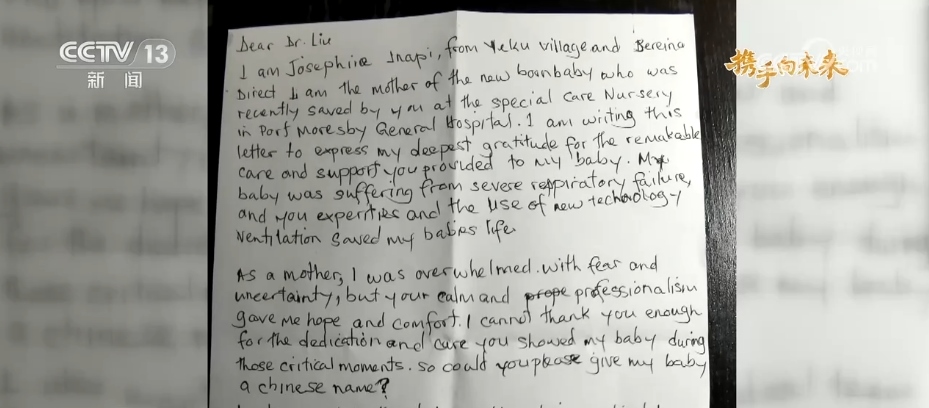 CCTV 13
新闻
携手向未来
Dear Dr. Liu
I am Josephine Inapi, from Yeku Village and Bereina
Direct I am the mother of the new boanbaby who was
recently saved by you at the special care Nursery
in Port Moresby General Hospital. I am writing this
letter to express my deepest gratitude for the remakable
care and support you provided to my baby. My
baby was suffering from severe respiratory failure,
and you experities and the use of new technology
Ventilation saved my babies life.
As a mother, I was overwhelmed with fear and
uncertainty, but your calm and professionalism
gave me hope and comfort. I cannot thank you enough
for the dedication and care you showed my baby during
those critical moments. So could you please give my baby
a chinese name?